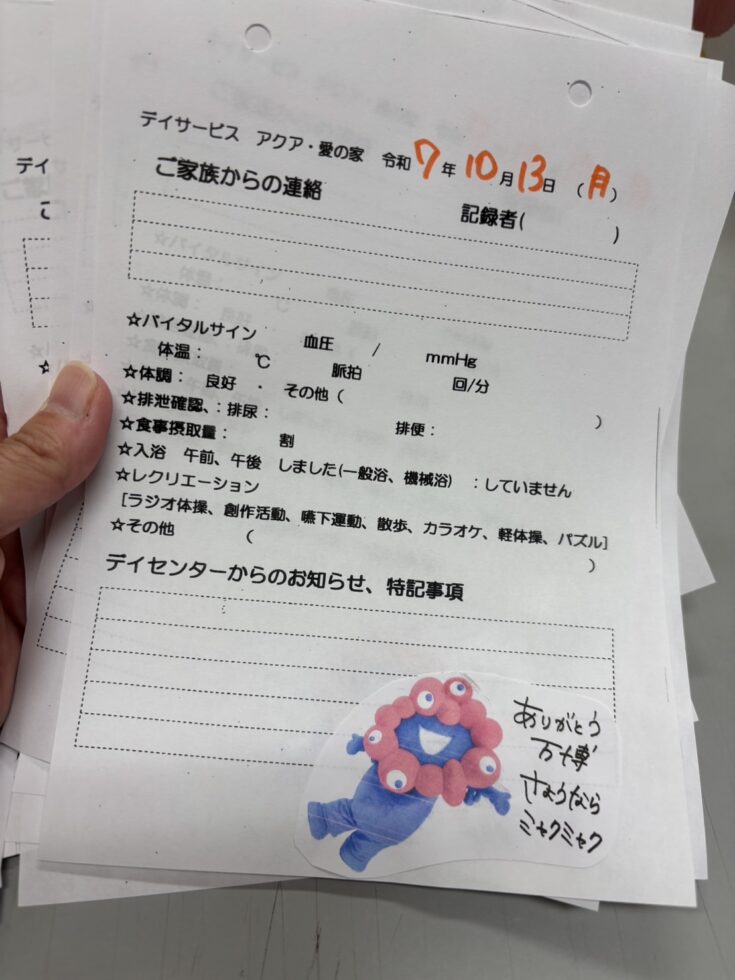 デイサービス アクア・愛の家 令和7年10月13日 (月)
ご家族からの連絡 記録者( )
☆バイタルサイン 血圧 / mmHg
体温: ℃ 脈拍 回/分
☆体調: 良好 ・ その他 ( )
☆排泄確認、: 排尿: 排便:
☆食事摂取量: 割
☆入浴 午前、午後 しました(一般浴、機械浴) :していません
☆レクリエーション
[ラジオ体操、創作活動、嚥下運動、散歩、カラオケ、軽体操、パズル]
☆その他 ( )
デイセンターからのお知らせ、特記事項
ありがとう
万博
さようなら
ミャクミャク
デイ
ご